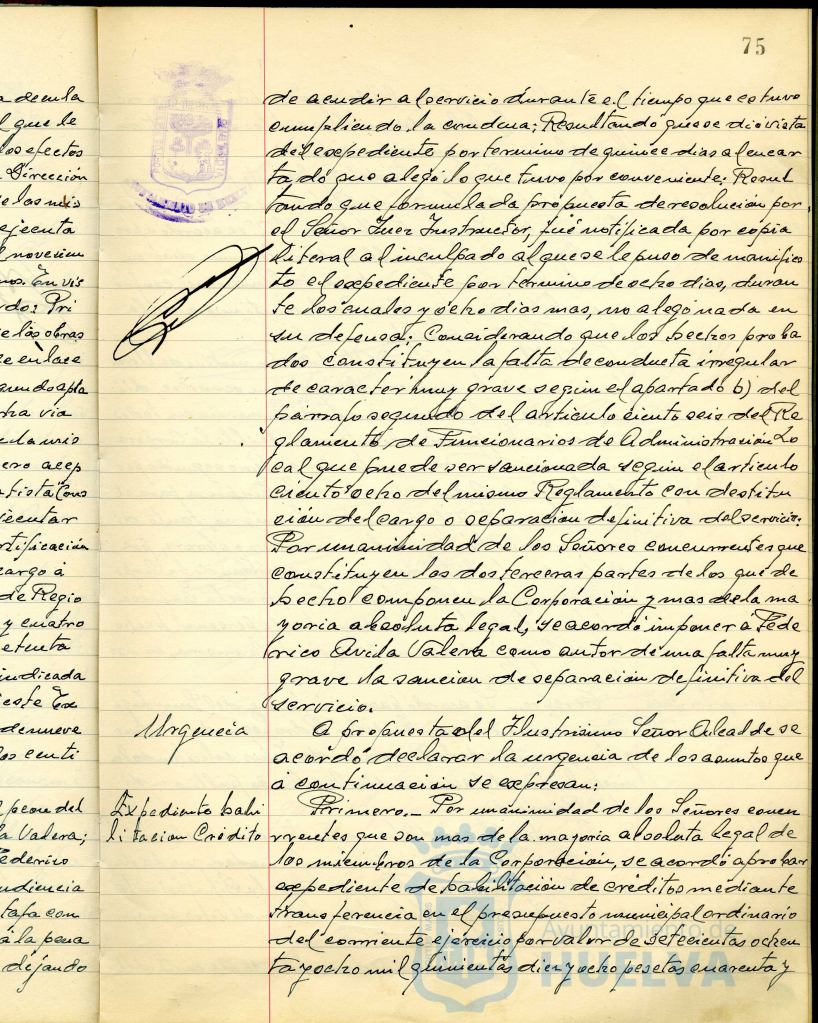 75
de acudir al servicio durante el tiempo que estuvo
cumpliendo la condena; Resultando que se dió vista
del expediente por termino de quince dias al encar
tado que alegó lo que tuvo por conveniente: Resul
tando que formulada propuesta de resolución por
el Señor Juez Instructor, fué notificada por copia
literal al inculpado al que se le puso de manifies
to el expediente por termino de ocho dias, duran
te los cuales y ocho dias mas, no alegó nada en
su defensa: Considerando que los hechos proba
dos constituyen la falta de conducta irregular
de caracter muy grave segun el apartado b) del
párrafo segundo del articulo ciento seis del Re
glamento de Funcionarios de Administración Lo
cal que puede ser sancionada segun el articulo
ciento ocho del mismo Reglamento con destitu
ción del cargo o separación definitiva del servicio.
Por unanimidad de los Señores concurrentes que
constituyen las dos terceras partes de los que de
hecho componen la Corporación y mas de la ma
yoria absoluta legal, se acordó imponer a Fede
rico Avila Valera como autor de una falta muy
grave la sancion de separación definitiva del
servicio.
Urgencia
A propuesta del Ilustrisimo Señor Alcalde se
acordó declarar la urgencia de los asuntos que
á continuación se expresan:
Expediente habi
litacion Crédito
Primero.- Por unanimidad de los Señores concu
rrentes que son mas de la mayoria absoluta legal de
los miembros de la Corporación, se acordó aprobar
expediente de habilitación de créditos mediante
transferencia en el presupuesto municipal ordinario
del corriente ejercicio por valor de setecientas ochen
ta y ocho mil quinientas diez y ocho pesetas cuarenta y
que le
los efectos
Dirección
de las mis
ejecuta
novecien
mos. En vis
do: Pri
e las obras
de enlace
ha via
ero acep
tista Cons
ejecutar
rtificación
cargo á
de Regio
y cuatro
etenta
indicada
este Ex
denueve
los centi
peon del
la Valera;
Federico
udiencia
tafa con
á la pena
dejando
Ayuntamiento de
HUELVA